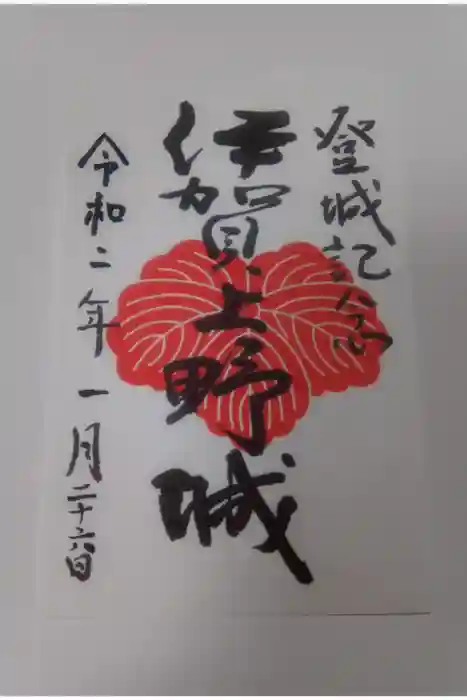 登城記念
伊賀上野城
令和二年一月二十六日